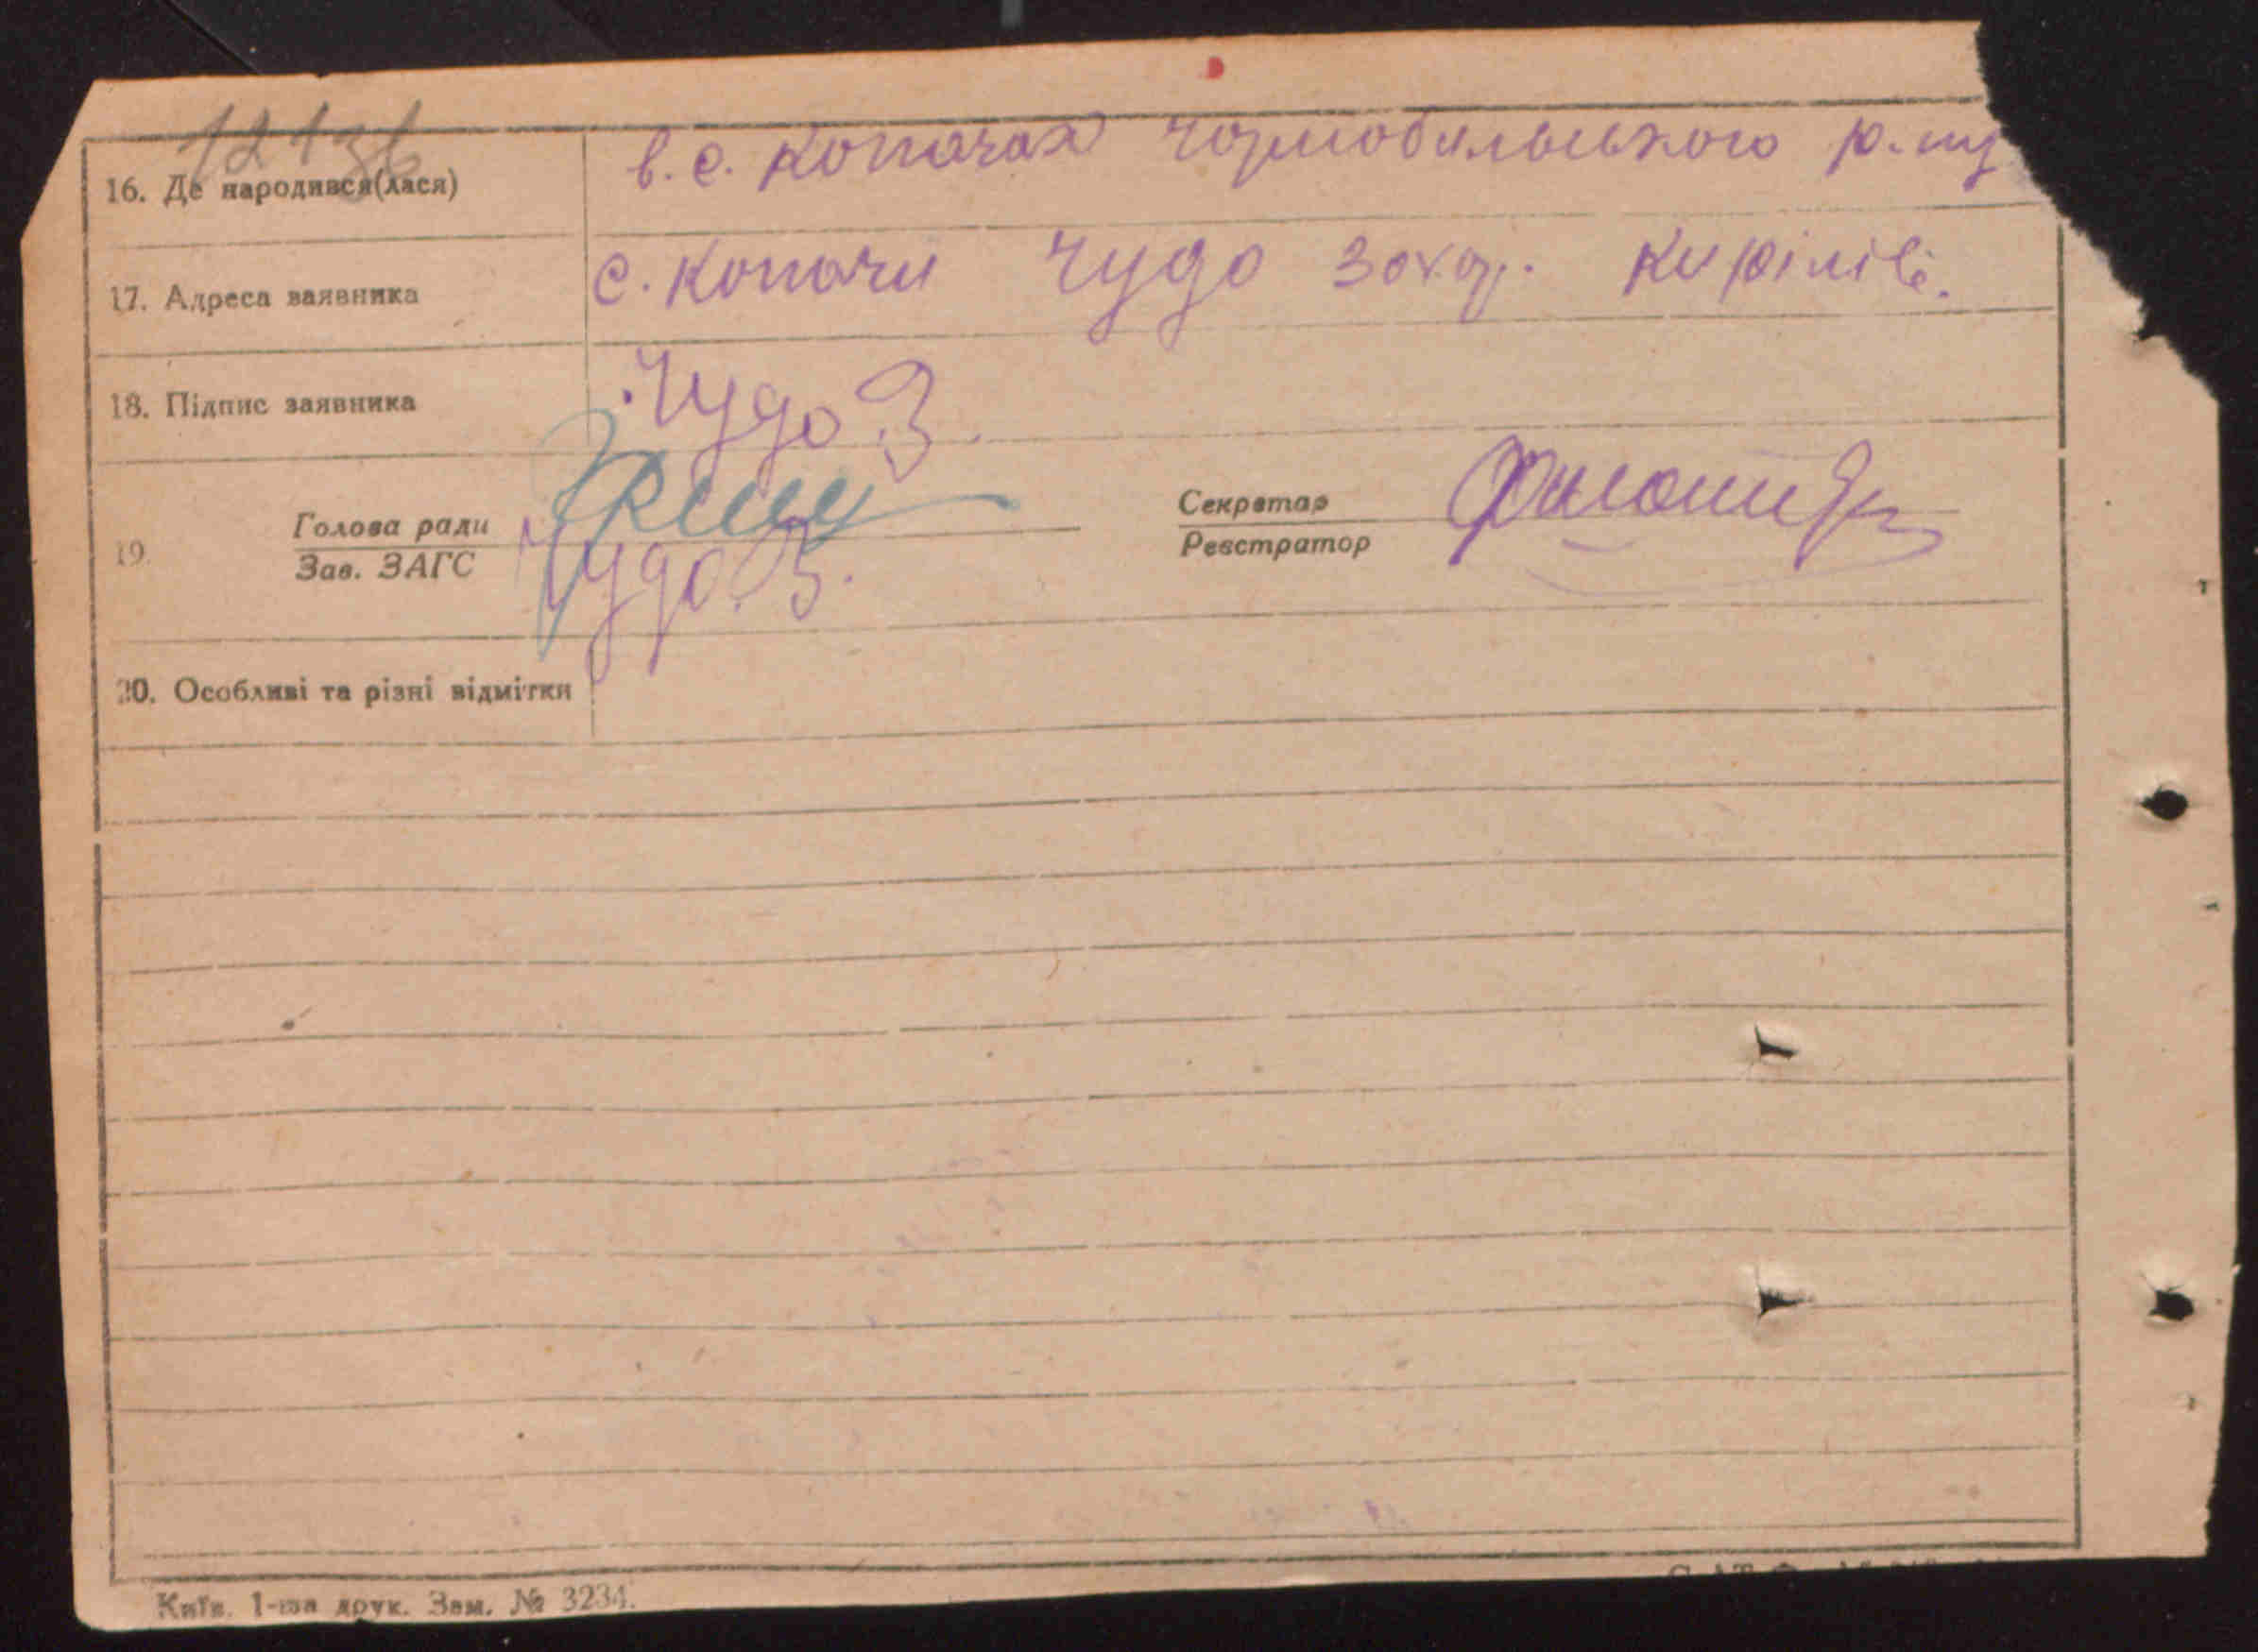 12136
16. Де народився(лася) в. с. Копачах Чорнобильського р.
17. Адреса заявника с. Копачи Чудо Захар. Кирілів.
18. Підпис заявника Чудо З.
19. Голова ради Секретар
Зав. ЗАГС Чудо. З. Реєстратор
20. Особливі та різні відмітки
Київ. 1-ша друк. Зам. № 3234.